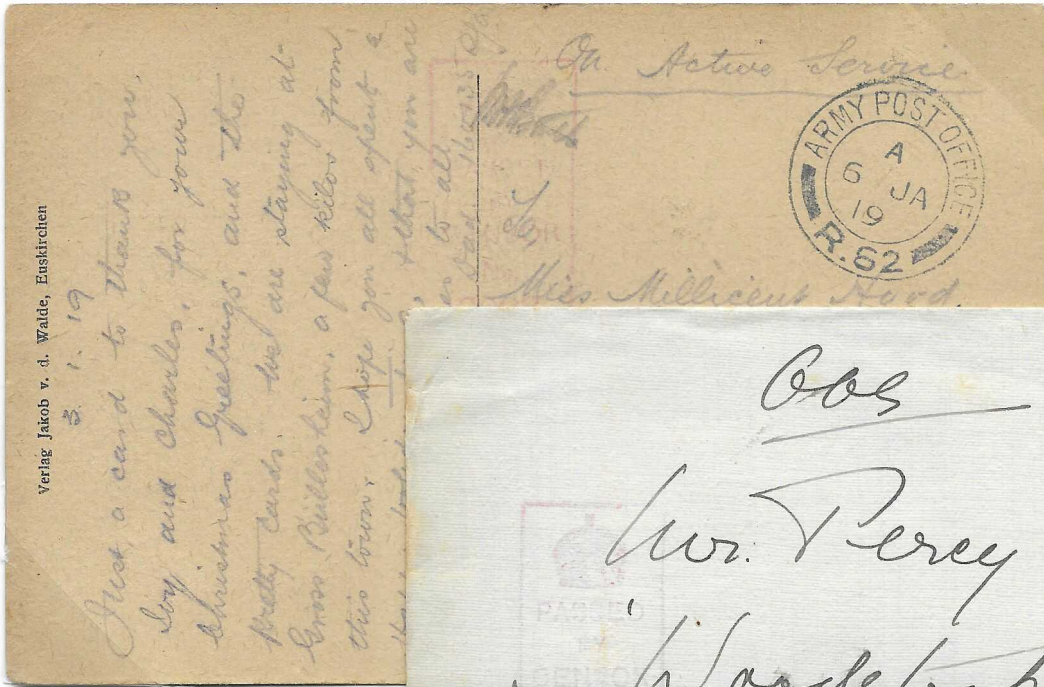 Verlag Jakob v. d. Walde, Euskirchen
3. 1. 19
Just a card to thank you,
Ivy and Charles, for your
Christmas Greetings, and the
Pretty Cards. We are staying at
Gross Büllesheim, a few kilos from
this town. I hope you all spent a
that you are
to all
Dad.
On Active Service
ARMY POST OFFICE
A
6 JA
19
R.62
Miss Millicent
OAS
Mr. Percy
PASSED
BY
CENSOR